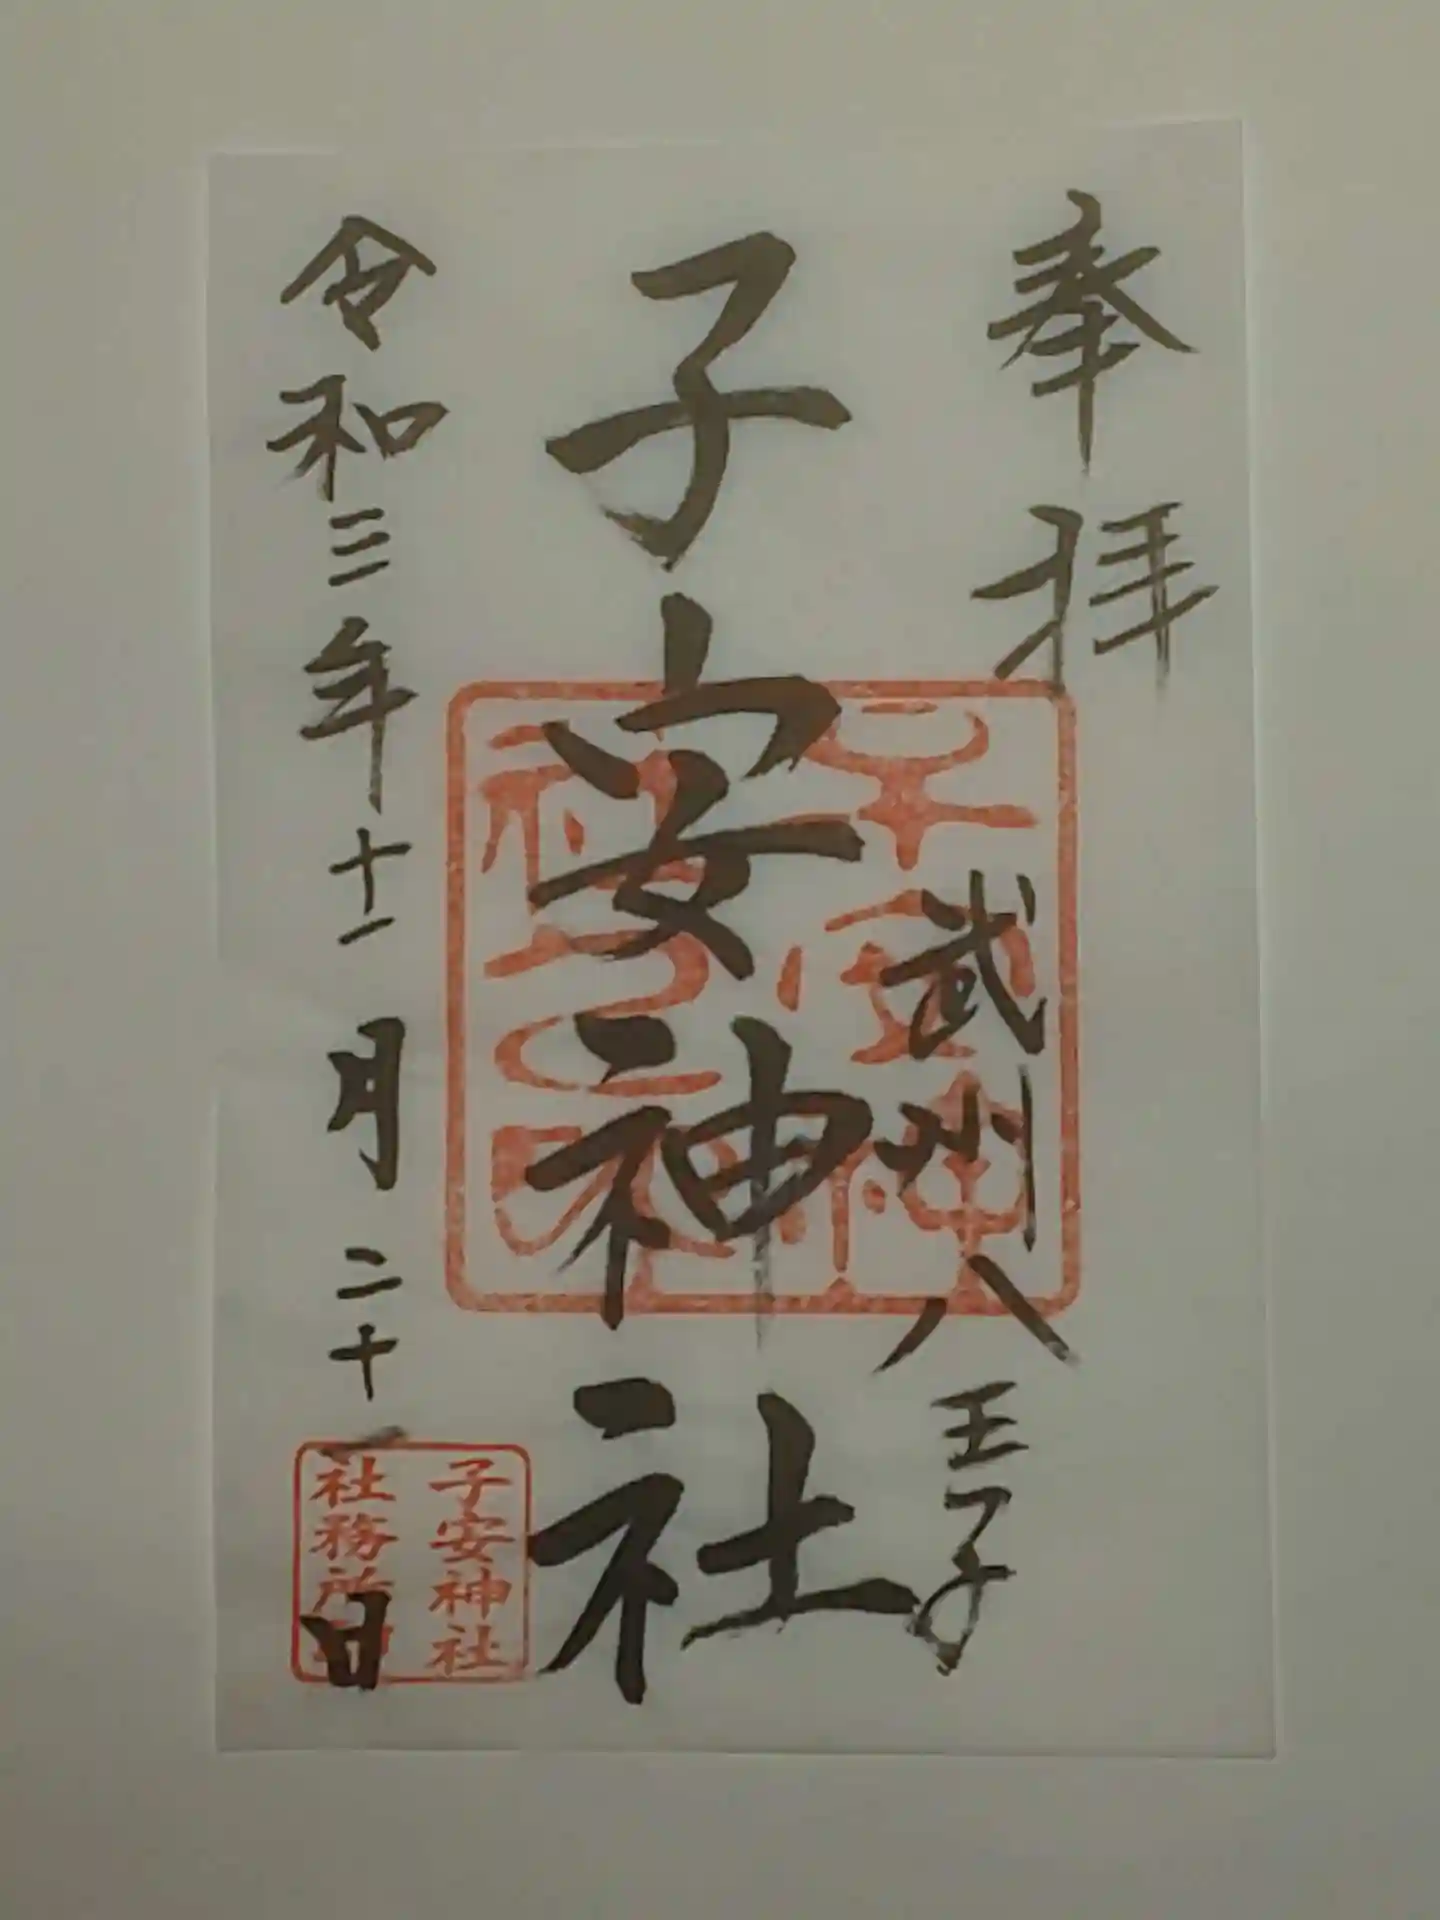 奉拝
武州八王子
子安神社
令和三年十一月二十一日
子安神社
社務所印
子安神
社之印